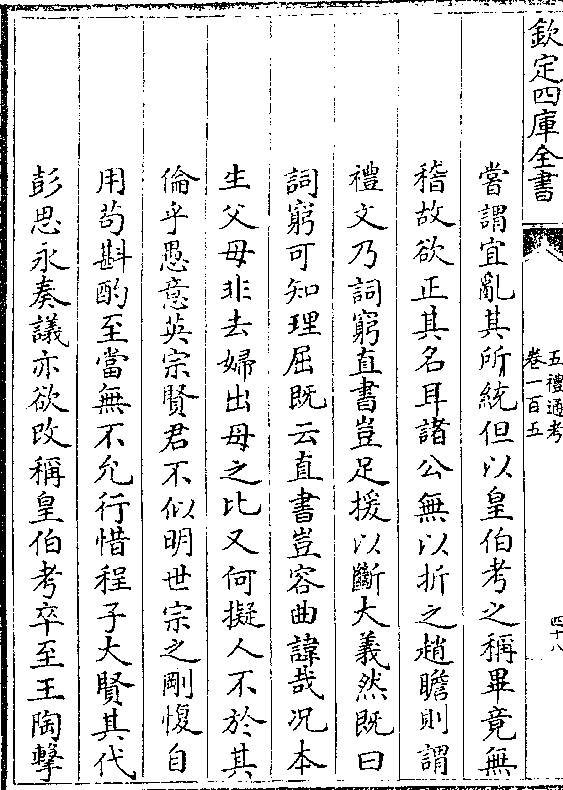 欽定四庫全書
五禮通考
卷一百五
四十八
嘗謂宜亂其所統但以皇伯考之稱畢竟無
稽故欲正其名耳諸公無以折之趙瞻則謂
禮文乃詞窮直書豈足援以斷大義然既曰
詞窮可知理屈既云直書豈容曲諱哉况本
生父母非去婦出母之比又何擬人不於其
倫乎愚意英宗賢君不似明世宗之剛愎自
用茍斟酌至當無不允行惜程子大賢其代
彭思永奏議亦欲改稱皇伯考卒至王陶擊